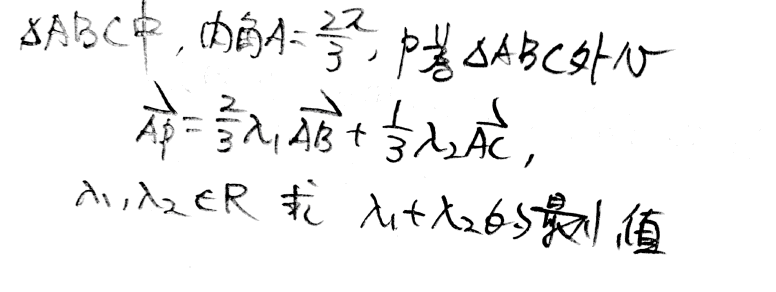 △ABC中,内角A=$\frac{2π}{3}$, P为△ABC外心
$\overrightarrow{AP}=\frac{2}{3}λ_1\overrightarrow{AB}+\frac{1}{3}λ_2\overrightarrow{AC}$,
$λ_1,λ_2∈R$ 求 $λ_1+λ_2$的最小值